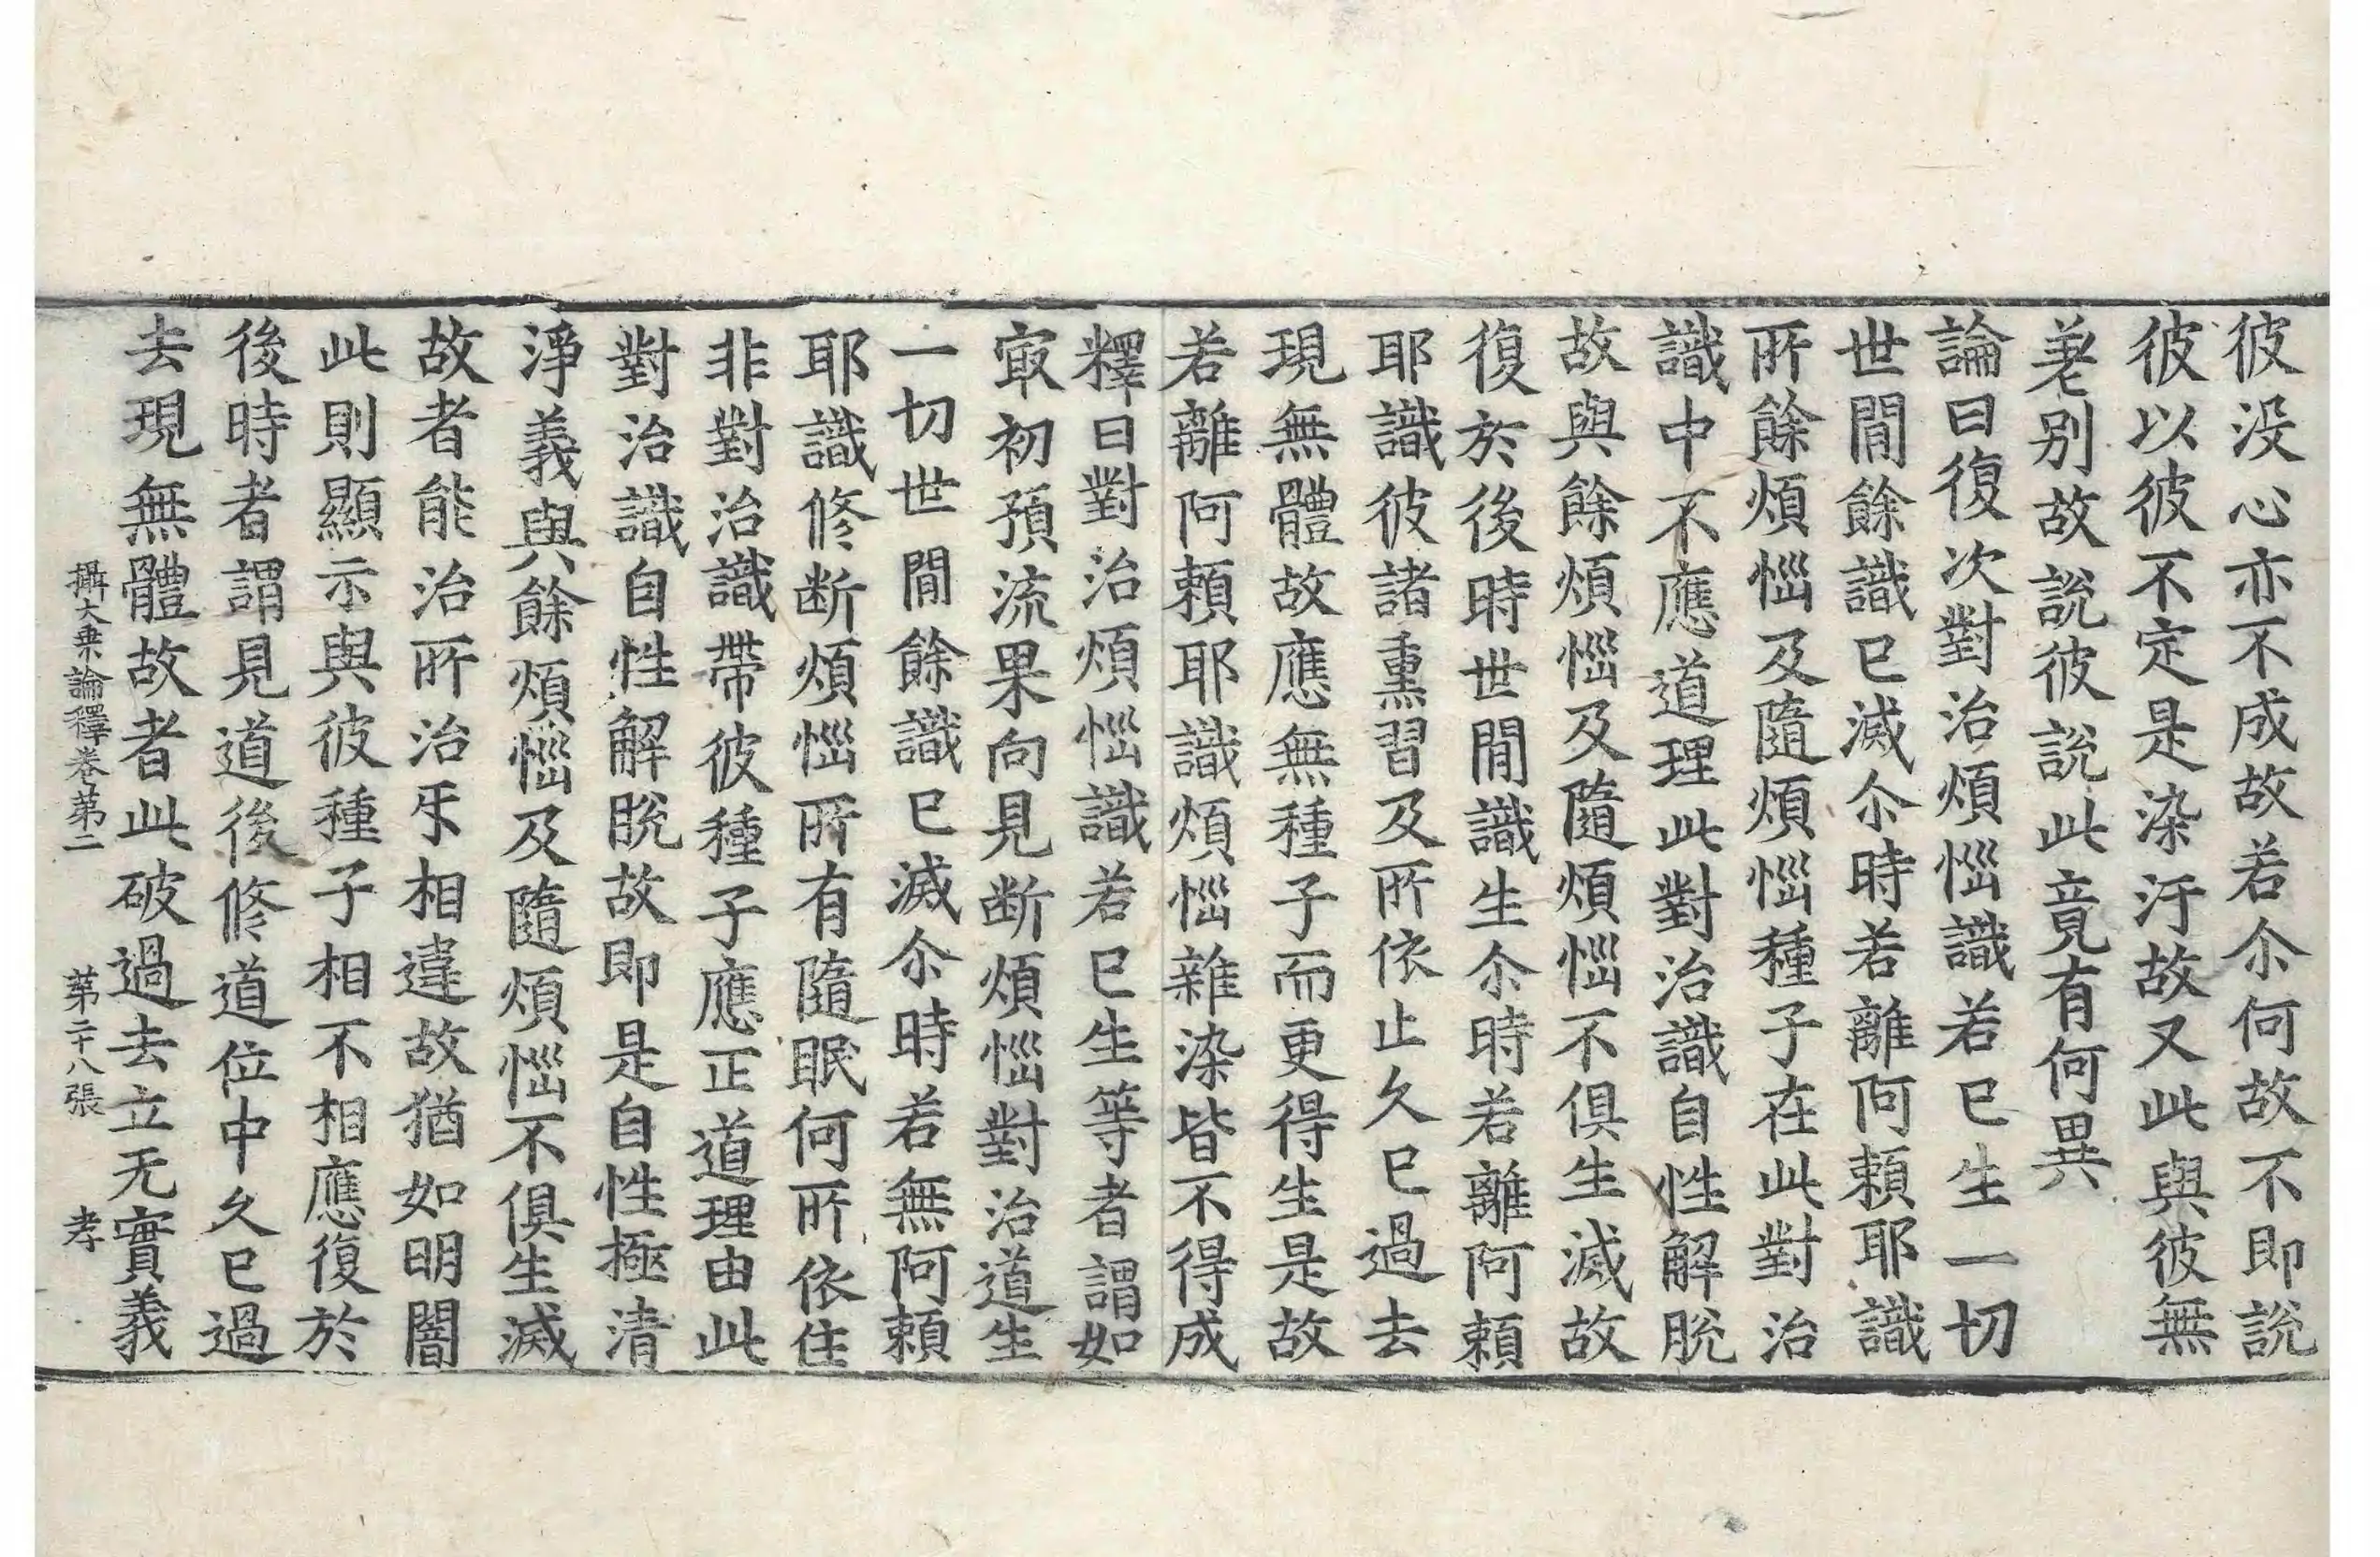 彼没心亦不成故若尒何故不即說
彼以彼不定是染汙故又此與彼無
差别故說彼說此竟有何異
論曰復次對治煩惱識若已生一切
世間餘識已滅尒時若離阿賴耶識
所餘煩惱及隨煩惱種子在此對治
識中不應道理此對治識自性解脫
故與餘煩惱及隨煩惱不俱生滅故
復於後時世間識生尒時若離阿賴
耶識彼諸熏習及所依止久已過去
現無體故應無種子而更得生是故
若離阿賴耶識煩惱雜染皆不得成
釋曰對治煩惱識若已生等者謂如
㝡初預流果向見断煩惱對治道生
一切世間餘識已滅尒時若無阿賴
耶識修断煩惱所有隨眠何所依住
非對治識帶彼種子應正道理由此
對治識自性解脫故即是自性極清
淨義與餘煩惱及隨煩惱不俱生滅
故者能治所治乐相違故猶如明闇
此則顯示與彼種子相不相應復於
後時者謂見道後修道位中久已過
去現無體故者此破過去立无實義
攝大乗論釋卷第二 第二十八張 孝